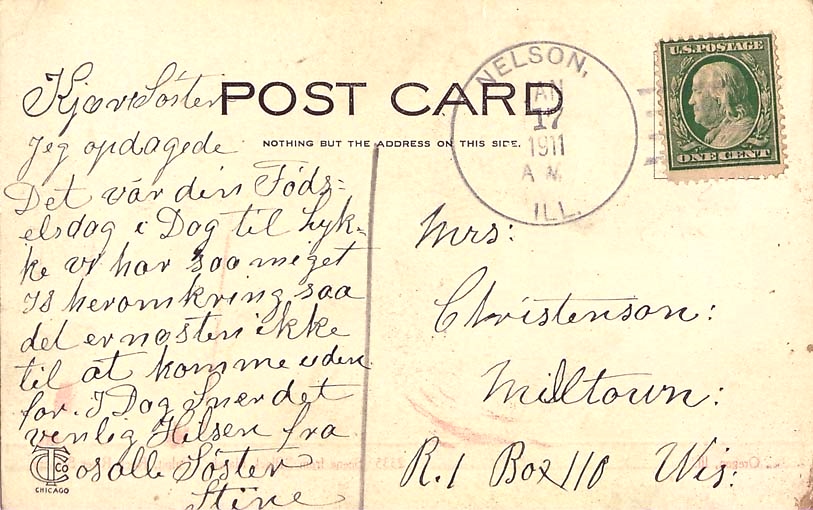 Kjære Søster
POST CARD
NOTHING BUT THE ADDRESS ON THIS SIDE.
Jeg opdagede
Det var din Føds=
elsdag i Dag til Lyk=
ke vi har saa meget
Is heromkring saa
det er nasten ikke
til at komme uden
for. I Dag Sner det
venlig Hilsen fra
os alle Søster
Stine
CHICAGO
NELSON,
AN
17
1911
A M.
ILL.
U.S. POSTAGE
ONE CENT
Mrs:
Christenson:
Milltown:
R.1 Box 110 Wis: